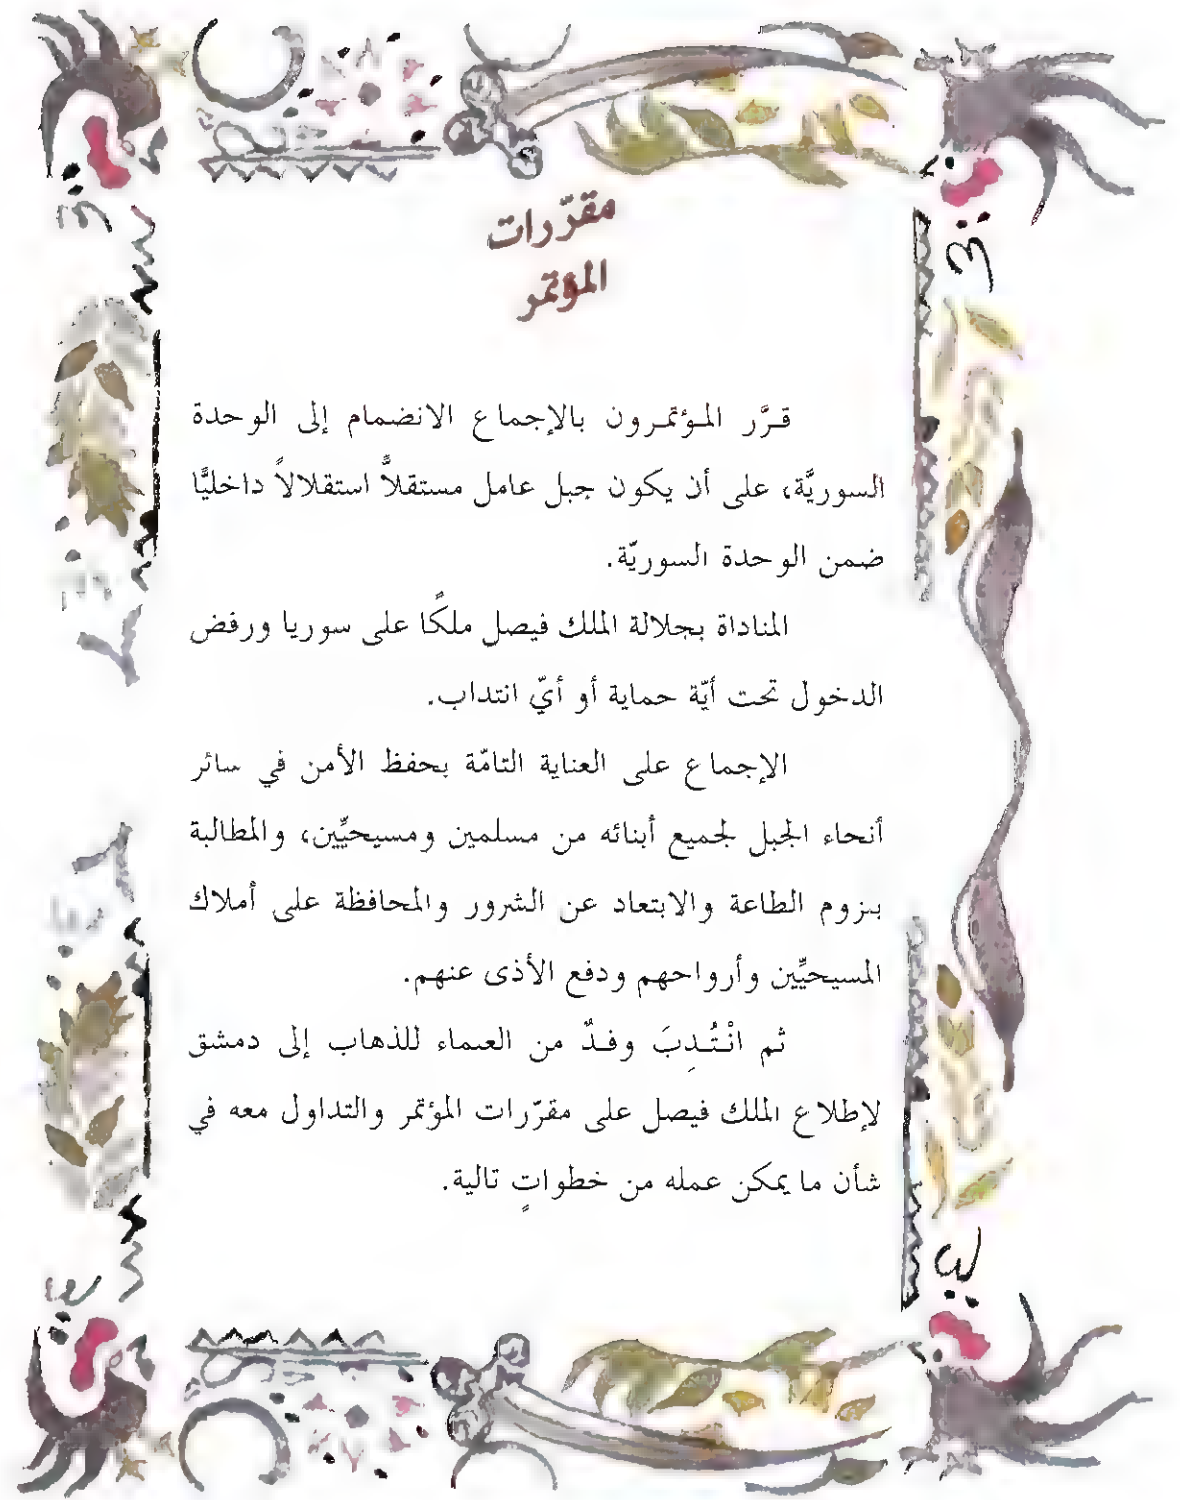 مقرّرات
المؤتمر
قرَّر المؤتمرون بالإجماع الانضمام إلى الوحدة
السوريَّة، على أن يكون جبل عامل مستقلاًّ استقلالاً داخليًّا
ضمن الوحدة السوريّة.
المناداة بجلالة الملك فيصل ملكًا على سوريا ورفض
الدخول تحت أيّة حماية أو أيّ انتداب.
الإجماع على العناية التامّة بحفظ الأمن في سائر
أنحاء الجبل لجميع أبنائه من مسلمين ومسيحيِّين، والمطالبة
بلزوم الطاعة والابتعاد عن الشرور والمحافظة على أملاك
المسيحيِّين وأرواحهم ودفع الأذى عنهم.
ثم انْتُدِبَ وفدٌ من العلماء للذهاب إلى دمشق
لإطلاع الملك فيصل على مقرّرات المؤتمر والتداول معه في
شأن ما يمكن عمله من خطواتٍ تالية.